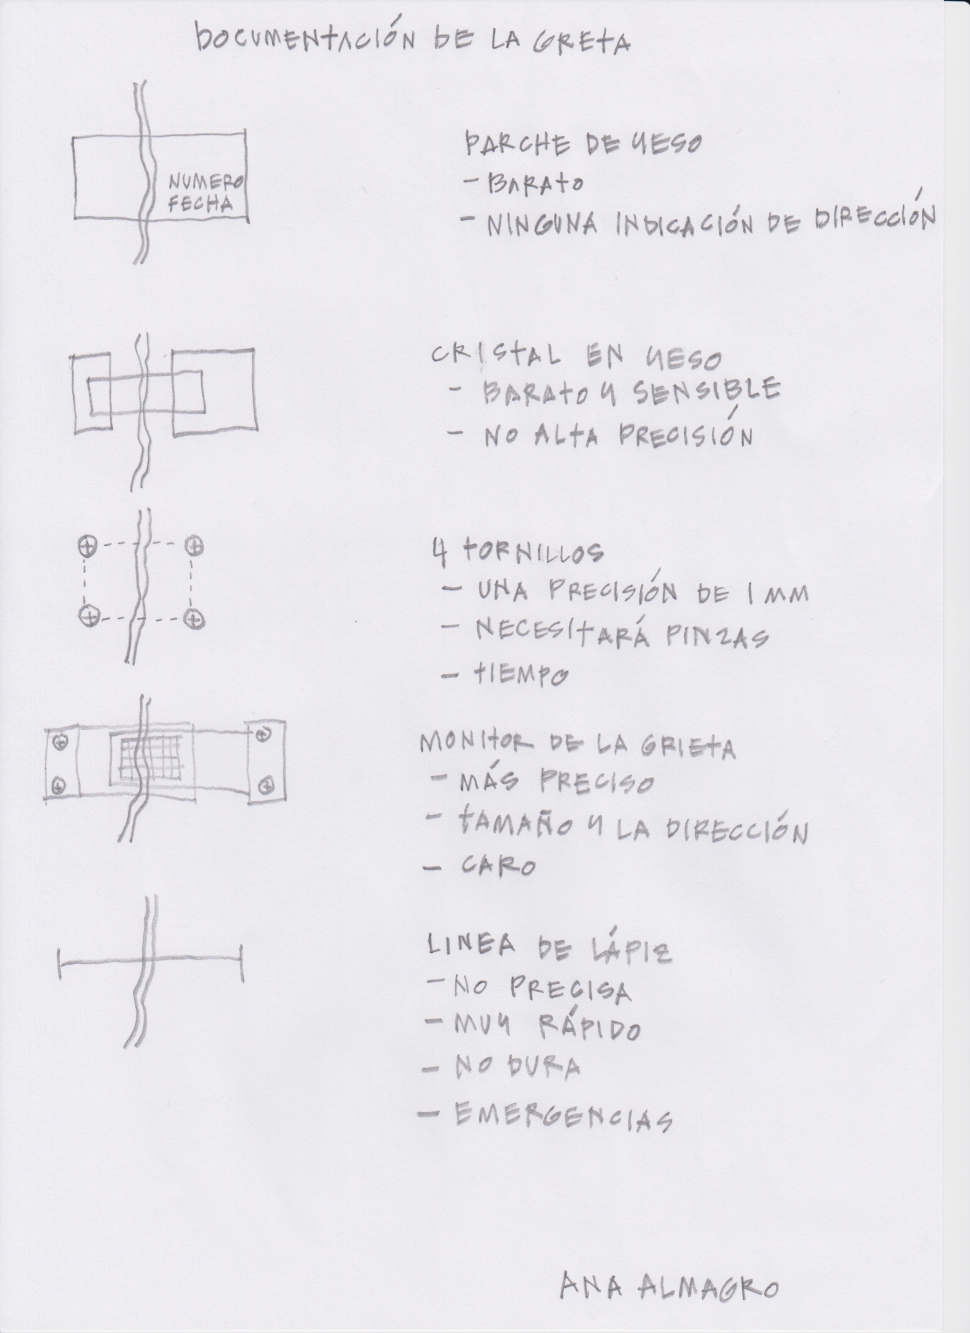 DOCUMENTACIÓN DE LA GRETA
NUMERO
FECHA
PARCHE DE YESO
- BARATO
- NINGUNA INDICACIÓN DE DIRECCIÓN
CRISTAL EN YESO
- BARATO Y SENSIBLE
- NO ALTA PRECISIÓN
4 TORNILLOS
- UNA PRECISIÓN DE 1 MM
- NECESITARÁ PINZAS
- TIEMPO
MONITOR DE LA GRIETA
- MÁS PRECISO
- TAMAÑO Y LA DIRECCIÓN
- CARO
LINEA DE LÁPIZ
- NO PRECISA
- MUY RÁPIDO
- NO DURA
- EMERGENCIAS
ANA ALMAGRO